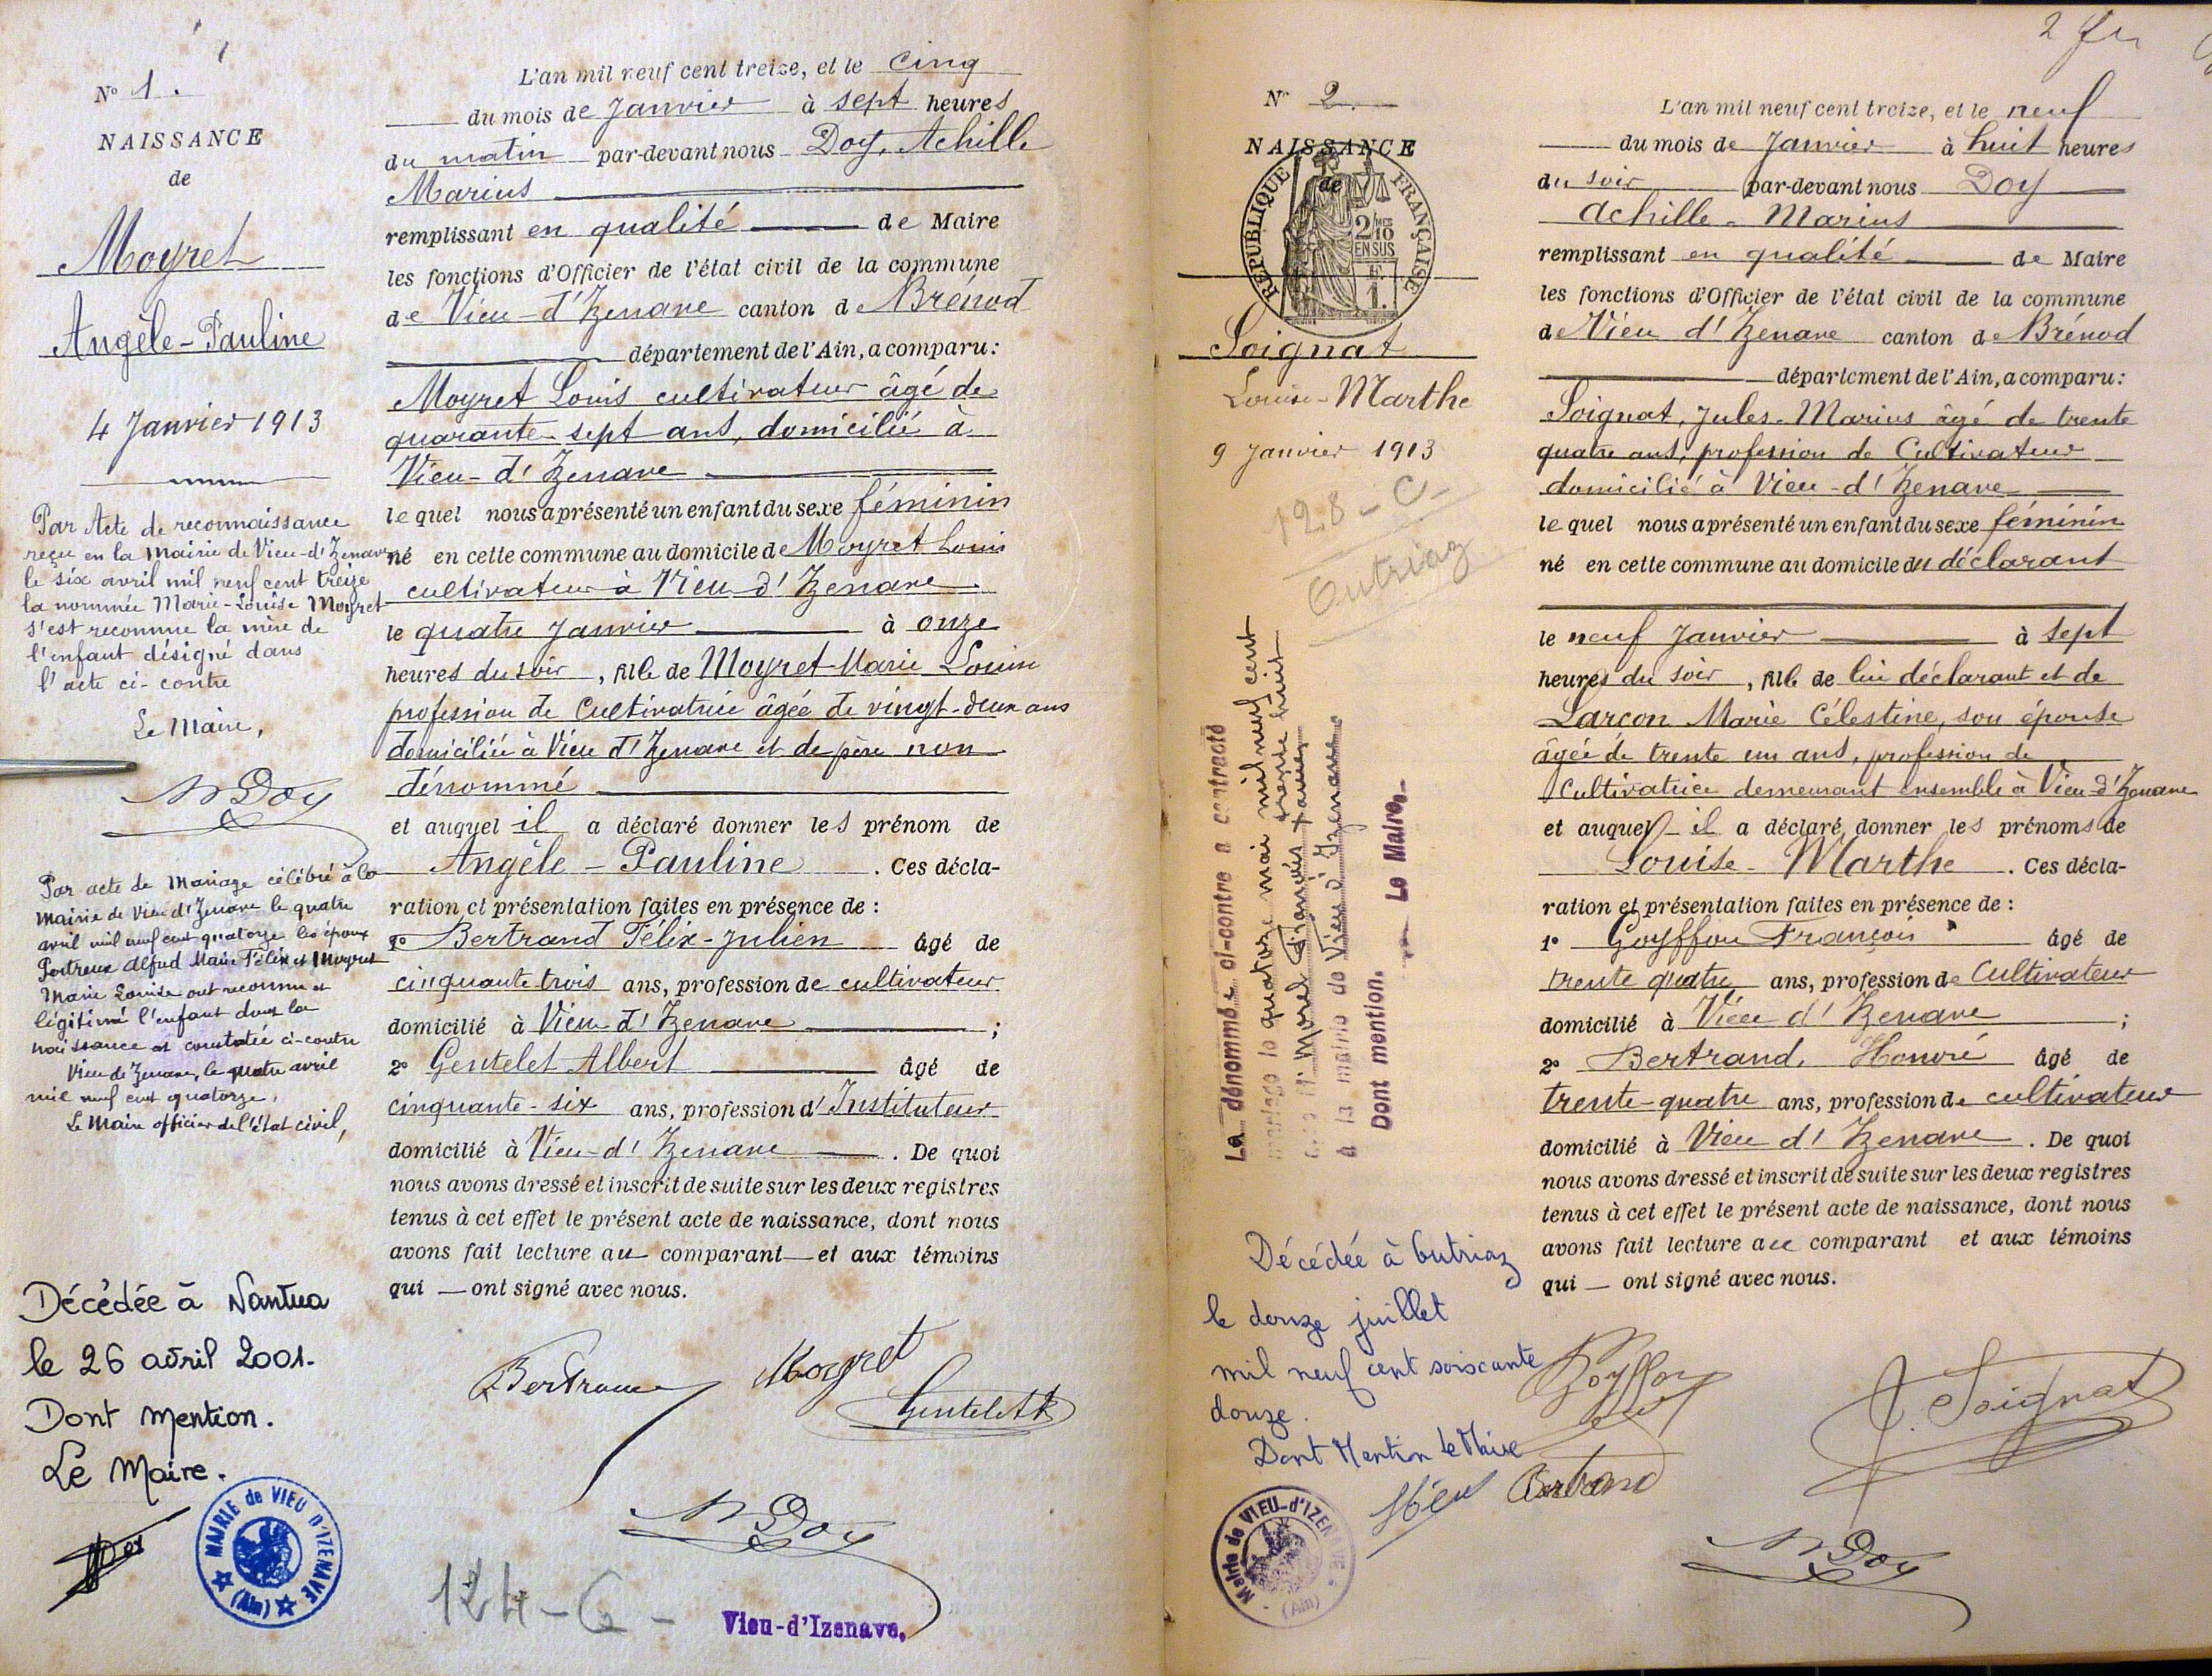 N° 1.
NAISSANCE
de
Moyret
Angèle-Pauline
4 Janvier 1913
Par Acte de reconnaissance
reçu en la Mairie de Vieu-d'Izenave
le six avril mil neuf cent treize
la nommée Marie-Louise Moyret
s'est reconnue la mère de
l'enfant désigné dans
l'acte ci-contre
Le Maire,
M Doy
Par acte de Mariage célébré à la
Mairie de Vieu d'Izenave le quatre
avril mil neuf cent quatorze les époux
Alfred Marie Félix et Moyret
Marie Louise ont reconnu et
légitimé l'enfant dont la
naissance est constatée ci-contre
Vieu d'Izenave, le quatre avril
mil neuf cent quatorze,
Le Maire officier de l'état civil,
Décédée à Nantua
le 26 avril 2001.
Dont mention.
Le Maire.
MAIRIE de VIEU D'IZENAVE
(Ain)
L'an mil neuf cent treize, et le cinq
du mois de Janvier à sept heures
du matin par-devant nous Doy, Achille
Marius
remplissant en qualité de Maire
les fonctions d'Officier de l'état civil de la commune
de Vieu-d'Izenave canton de Brénod
département de l'Ain, a comparu:
Moyret Louis cultivateur âgé de
quarante-sept ans, domicilié à
Vieu-d'Izenave
lequel nous a présenté un enfant du sexe féminin
né en cette commune au domicile de Moyret Louis
cultivateur à Vieu d'Izenave
le quatre Janvier à onze
heures du soir, fille de Moyret Marie Louise
profession de Cultivatrice âgée de vingt-deux ans
domiciliée à Vieu d'Izenave et de père non
dénommé
et auquel il a déclaré donner les prénom de
Angèle-Pauline. Ces décla-
ration et présentation faites en présence de :
1° Bertrand Félix-Julien âgé de
cinquante trois ans, profession de cultivateur
domicilié à Vieu d'Izenave ;
2° Gentelet Albert âgé de
cinquante-six ans, profession d'Instituteur
domicilié à Vieu-d'Izenave. De quoi
nous avons dressé et inscrit de suite sur les deux registres
tenus à cet effet le présent acte de naissance, dont nous
avons fait lecture au comparant et aux témoins
qui ont signé avec nous.
Bertrand
Moyret
Gentelet A
M Doy
124-C-
Vieu-d'Izenave.
N° 2.
NAISSANCE
de
REPUBLIQUE FRANÇAISE
2/10 EN SUS
F. 1.
Soignat
Louise-Marthe
9 Janvier 1913
128-C-
Outriaz
La dénommée ci-contre a contracté
mariage le quatorze mai mil neuf cent trente huit
avec M. Morel François
à la mairie de Vieu d'Izenave
Dont mention. Le Maire,
Décédée à Outriaz
le douze juillet
mil neuf cent soixante
douze.
Dont Mention Le Maire
Mairie de VIEU-d'IZENAVE
(Ain)
L'an mil neuf cent treize, et le neuf
du mois de Janvier à huit heures
du soir par-devant nous Doy
Achille-Marius
remplissant en qualité de Maire
les fonctions d'Officier de l'état civil de la commune
de Vieu d'Izenave canton de Brénod
département de l'Ain, a comparu:
Soignat, Jules-Marius âgé de trente
quatre ans, profession de Cultivateur
domicilié à Vieu-d'Izenave
lequel nous a présenté un enfant du sexe féminin
né en cette commune au domicile du déclarant
le neuf Janvier à sept
heures du soir, fille de lui déclarant et de
Larçon Marie Célestine, son épouse
âgée de trente un ans, profession de
Cultivatrice demeurant ensemble à Vieu-d'Izenave
et auquel il a déclaré donner les prénoms de
Louise-Marthe. Ces décla-
ration et présentation faites en présence de :
1° Goyffon François âgé de
trente quatre ans, profession de Cultivateur
domicilié à Vieu d'Izenave ;
2° Bertrand, Honoré âgé de
trente-quatre ans, profession de cultivateur
domicilié à Vieu d'Izenave. De quoi
nous avons dressé et inscrit de suite sur les deux registres
tenus à cet effet le présent acte de naissance, dont nous
avons fait lecture au comparant et aux témoins
qui ont signé avec nous.
Goyffon
J. Soignat
Bertrand
M Doy